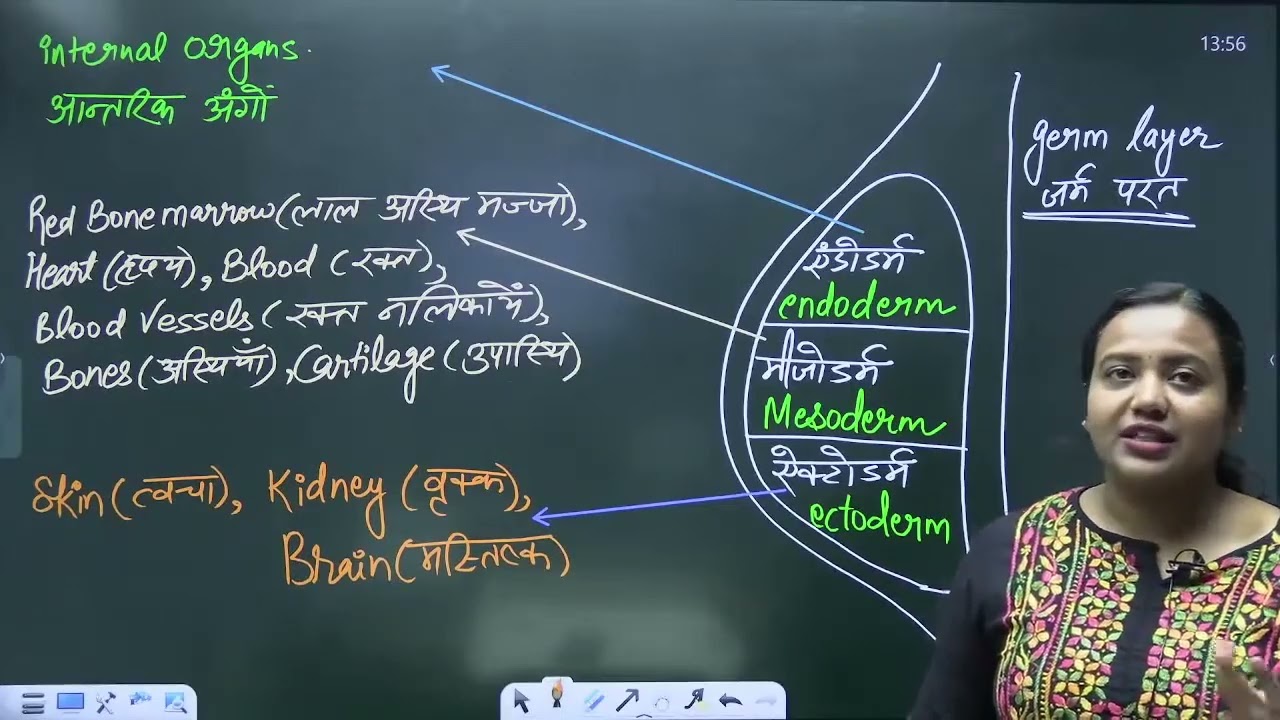 internal organs.
आन्तरिक अंगों
Red Bone marrow (लाल अस्थि मज्जा),
Heart (हृदय), Blood (रक्त),
Blood Vessels (रक्त नलिकायें),
Bones (अस्थियाँ), Cartilage (उपास्थि)
Skin (त्वचा), Kidney (वृक्क),
Brain (मस्तिष्क)
एंडोडर्म
endoderm
मीजोडर्म
Mesoderm
ऐक्टोडर्म
ectoderm
13:56
germ layer
जर्म परत